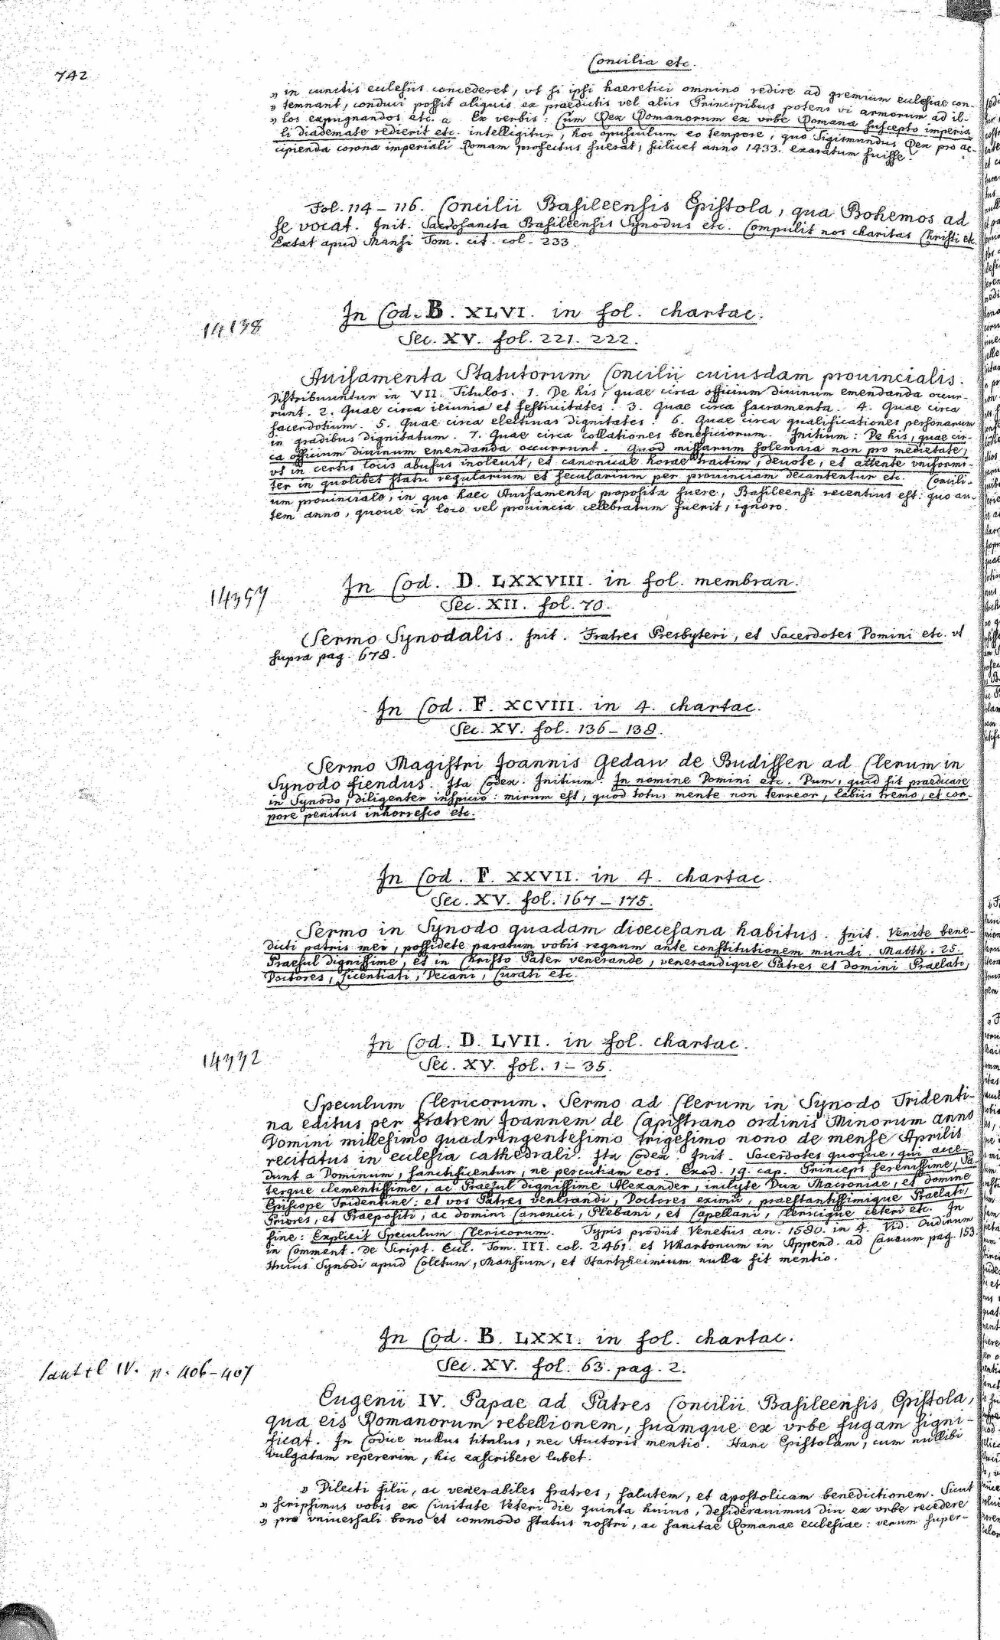 742
Concilia etc.
» in cunctis ecclesiis concederet, vt si ipsi haeretici omnino redire ad gremium ecclesiae con-
» temnant, conduci possit aliquis ex praedictis vel aliis Principibus potens vi armorum ad il-
» los expugnandos etc. a Ex verbis: Cum Rex Romanorum ex vrbe Romana suscepto imperia
li diademate redierit etc. intelligitur, hoc opusculum eo tempore, quo Sigismundus Rex pro ac-
cipienda corona imperiali Romam profectus fuerat, scilicet anno 1433. exaratum fuisse.
Fol. 114 – 116. Concilii Basileensis Epistola, qua Bohemos ad
se vocat. Init. Sacrosancta Basileensis Synodus etc. Compulit nos charitas Christi etc.
Extat apud Mansi Tom. cit. col. 233.
14138
In Cod. B. XLVI. in fol. chartac.
Sec. XV. fol. 221. 222.
Auisamenta Statutorum Concilii cuiusdam prouincialis.
Distribuuntur in VII. Titulos. 1. De his, quae circa officium diuinum emendanda occur-
runt. 2. Quae circa ieiunia et festiuitates. 3. Quae circa sacramenta. 4. Quae circa
sacerdotium. 5. Quae circa electiuas dignitates. 6. Quae circa qualificationes personarum
in gradibus dignitatum. 7. Quae circa collationes beneficiorum. Initium: De his, quae cir-
ca officium diuinum emendanda occurrunt. Quod missarum solemnia non pro medietate,
vt in certis locis abusus inoleuit, et canonicae horae tractim, deuote, et attente vniformi-
ter in quolibet statu regularium et secularium per prouinciam decantentur etc. Concili-
um prouinciale, in quo haec Auisamenta proposita fuere, Basileensi recentius est: quo au-
tem anno, quoue in loco vel prouincia celebratum fuerit, ignoro.
14357
In Cod. D. LXXVIII. in fol. membran.
Sec. XII. fol. 70.
Sermo Synodalis. Init. Fratres Presbyteri, et Sacerdotes Domini etc. vt
supra pag. 678.
In Cod. F. XCVIII. in 4. chartac.
Sec. XV. fol. 136 – 138.
Sermo Magistri Joannis Gedaw de Budissen ad Clerum in
Synodo fiendus. Ita Codex. Initium: In nomine Domini etc. Dum, quid sit praedicare
in Synodo, diligenter inspicio: mirum est, quod totus mente non terreor, labiis tremo, et cor-
pore penitus inhorresco etc.
In Cod. F. XXVII. in 4. chartac.
Sec. XV. fol. 167 – 175.
Sermo in Synodo quadam dioecesana habitus. Init. Venite bene-
dicti patris mei, possidete paratum vobis regnum ante constitutionem mundi. Matth. 25.
Praesul dignissime, et in Christo Pater venerande, venerandique Patres et domini Praelati,
Doctores, Licentiati, Decani, Curati etc.
14332
In Cod. D. LVII. in fol. chartac.
Sec. XV. fol. 1 – 35.
Speculum Clericorum. Sermo ad Clerum in Synodo Tridenti-
na editus per fratrem Joannem de Capistrano ordinis Minorum anno
Domini millesimo quadringentesimo trigesimo nono de mense Aprilis
recitatus in ecclesia cathedrali. Ita Codex. Init. Sacerdotes quoque, qui acce-
dunt a Dominum, sanctificentur, ne percutiam eos. Exod. 19. cap. Princeps serenissime, Pa-
terque clementissime, ac Praesul dignissime Alexander, inclyte Dux Macroniae, et domine
Episcope Tridentine: et vos Patres venerandi, Doctores eximii, praestantissimique Praelati,
Priores, et Praepositi, ac domini Canonici, Plebani, et Capellani, Clericique ceteri etc. In
fine: Explicit Speculum Clericorum. Typis prodiit Venetiis an. 1580. in 4. Vid. Oudinum
in Comment. de Script. Eccl. Tom. III. col. 2461. et Whartonum in Append. ad Caueum pag. 153.
Huius Synodi apud Coletum, Mansium, et Hartzheimium nulla fit mentio.
In Cod. B. LXXI. in fol. chartac.
Sec. XV. fol. 63. pag. 2.
IV. p. 406-407
Eugenii IV. Papae ad Patres Concilii Basileensis Epistola,
qua eis Romanorum rebellionem, suamque ex vrbe fugam signi-
ficat. In Codice nullus titulus, nec Auctoris mentio. Hanc Epistolam, cum nullibi
vulgatam repererim, hic exscribere lubet.
» Dilecti filii, ac venerabiles fratres, salutem, et apostolicam benedictionem. Sicut
» scripsimus vobis ex Ciuitate Veteri die quinta huius, desiderauimus diu ex vrbe recedere
» pro vniuersali bono et commodo status nostri, ac sanctae Romanae ecclesiae: verum super-